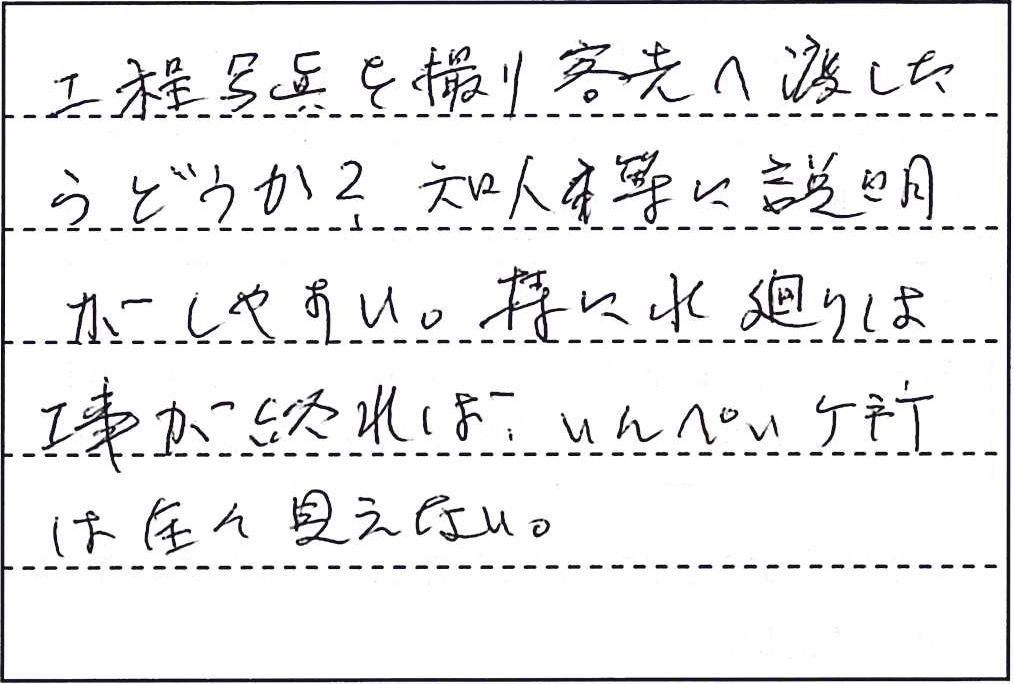 工程写真を撮り客先へ渡した
らどうか? 知人来等に説明
がしやすい。特に水廻りは
工事が終れば、いんぺいケ所
は全く見えない。